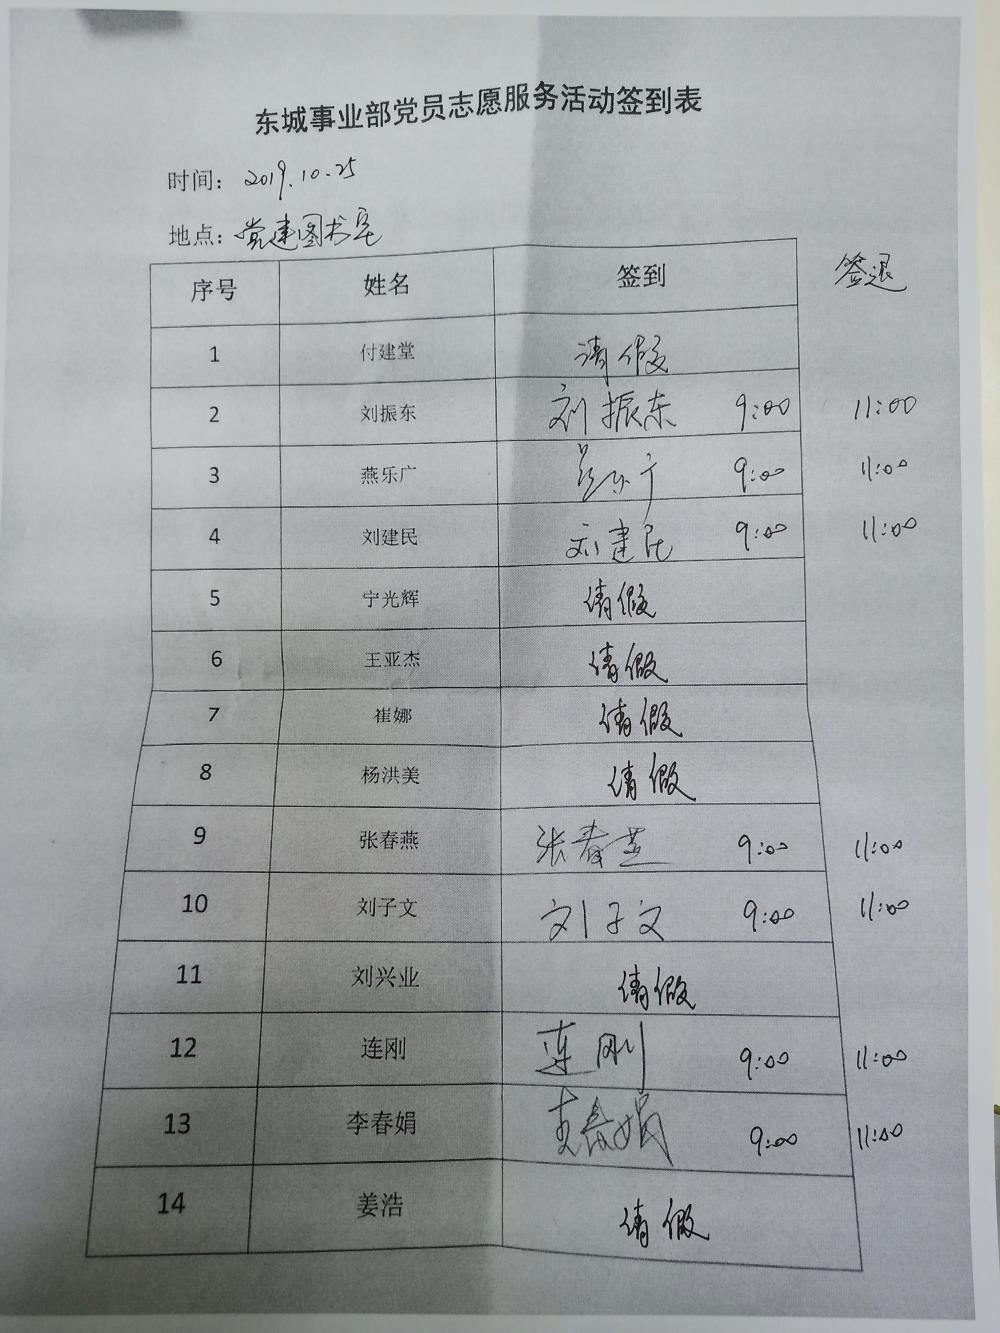 东城事业部党员志愿服务活动签到表
时间：2019.10.25
地点：党建图书室
序号 姓名 签到 签退
1 付建堂 请假
2 刘振东 刘振东 9:00 11:00
3 燕乐广 燕乐广 9:00 11:00
4 刘建民 刘建民 9:00 11:00
5 宁光辉 请假
6 王亚杰 请假
7 崔娜 请假
8 杨洪美 请假
9 张春燕 张春燕 9:00 11:00
10 刘子文 刘子文 9:00 11:00
11 刘兴业 请假
12 连刚 连刚 9:00 11:00
13 李春娟 李春娟 9:00 11:00
14 姜浩 请假